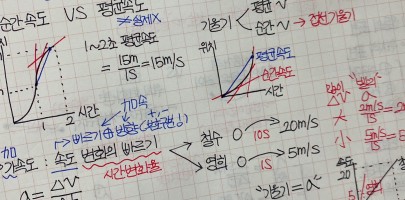 순간속도 VS 평균속도
1~2초 평균속도
= 15m/1s = 15m/s
위치
시간
1 2
기울기
평균 ~
순간 ~ → 접선기울기
위치
평균속도
순간속도
시간
가속
↳ 빠르기 + 방향
가속도 : 속도 변화의 빠르기
시간변화율
철수 0 → 20m/s
10s
영희 0 → 5m/s
1s
a = ΔV
ΔV "빨리" a
大 2m/s
小 5m/s
"기울기 = a"
속도
20
5
영희